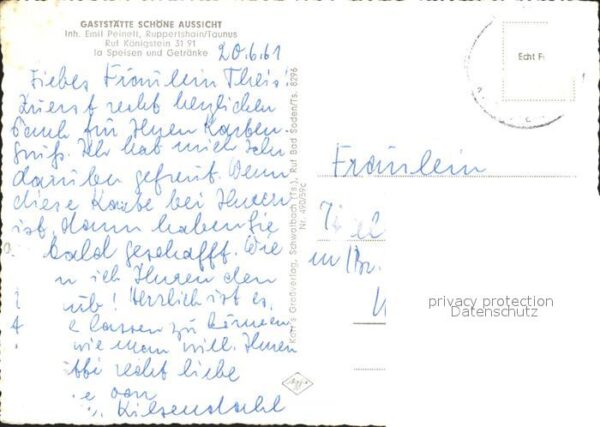 GASTSTÄTTE SCHÖNE AUSSICHT
Inh. Emil Peinelt, Ruppertshain/Taunus
Ruf Königstein 31 91
la Speisen und Getränke
20.6.61
Liebes Fräulein Theis!
Zuerst recht herzlichen
Dank für Ihren Karten-
gruß. Ich habe mich sehr
darüber gefreut. Wenn
diese Karte bei Ihnen
ist, dann haben Sie
bald geschafft. Wie
ich Ihnen den
! Herrlich ist es,
lassen zu können
wie man will. Ihnen
recht liebe
von
Kar's Großverlag, Schwalbach (Ts.), Ruf Bad Soden/Ts. 8296
Nr. 490/59c
Echt F
Fräulein
privacy protection
Datenschutz